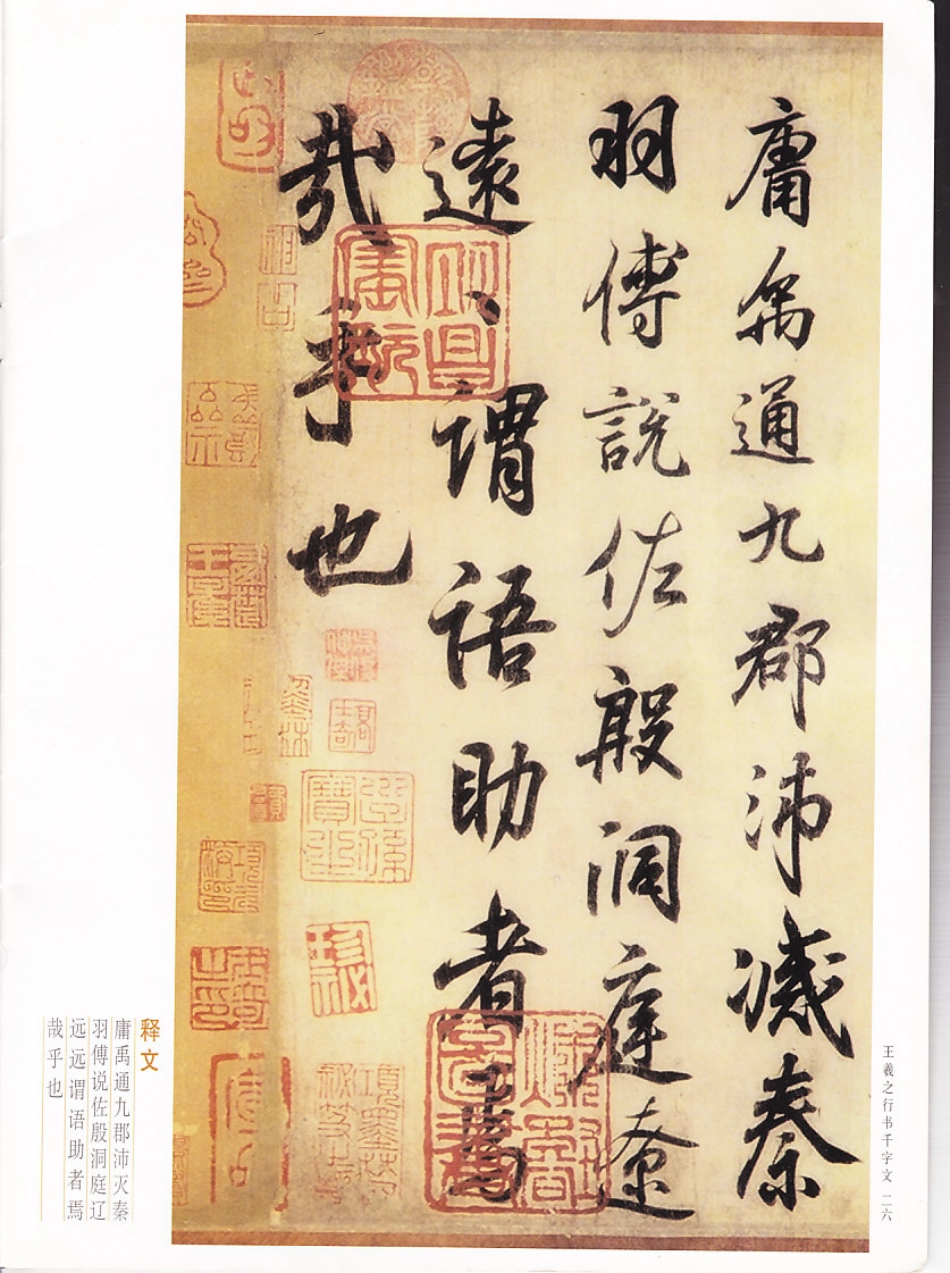 庸禹通九郡沛滅秦
羽傅說佐殷洞庭遼
遠、謂語助者焉
哉乎也
王羲之行书千字文 二六
释文
庸禹通九郡沛灭秦
羽傅说佐殷洞庭辽
远远谓语助者焉
哉乎也